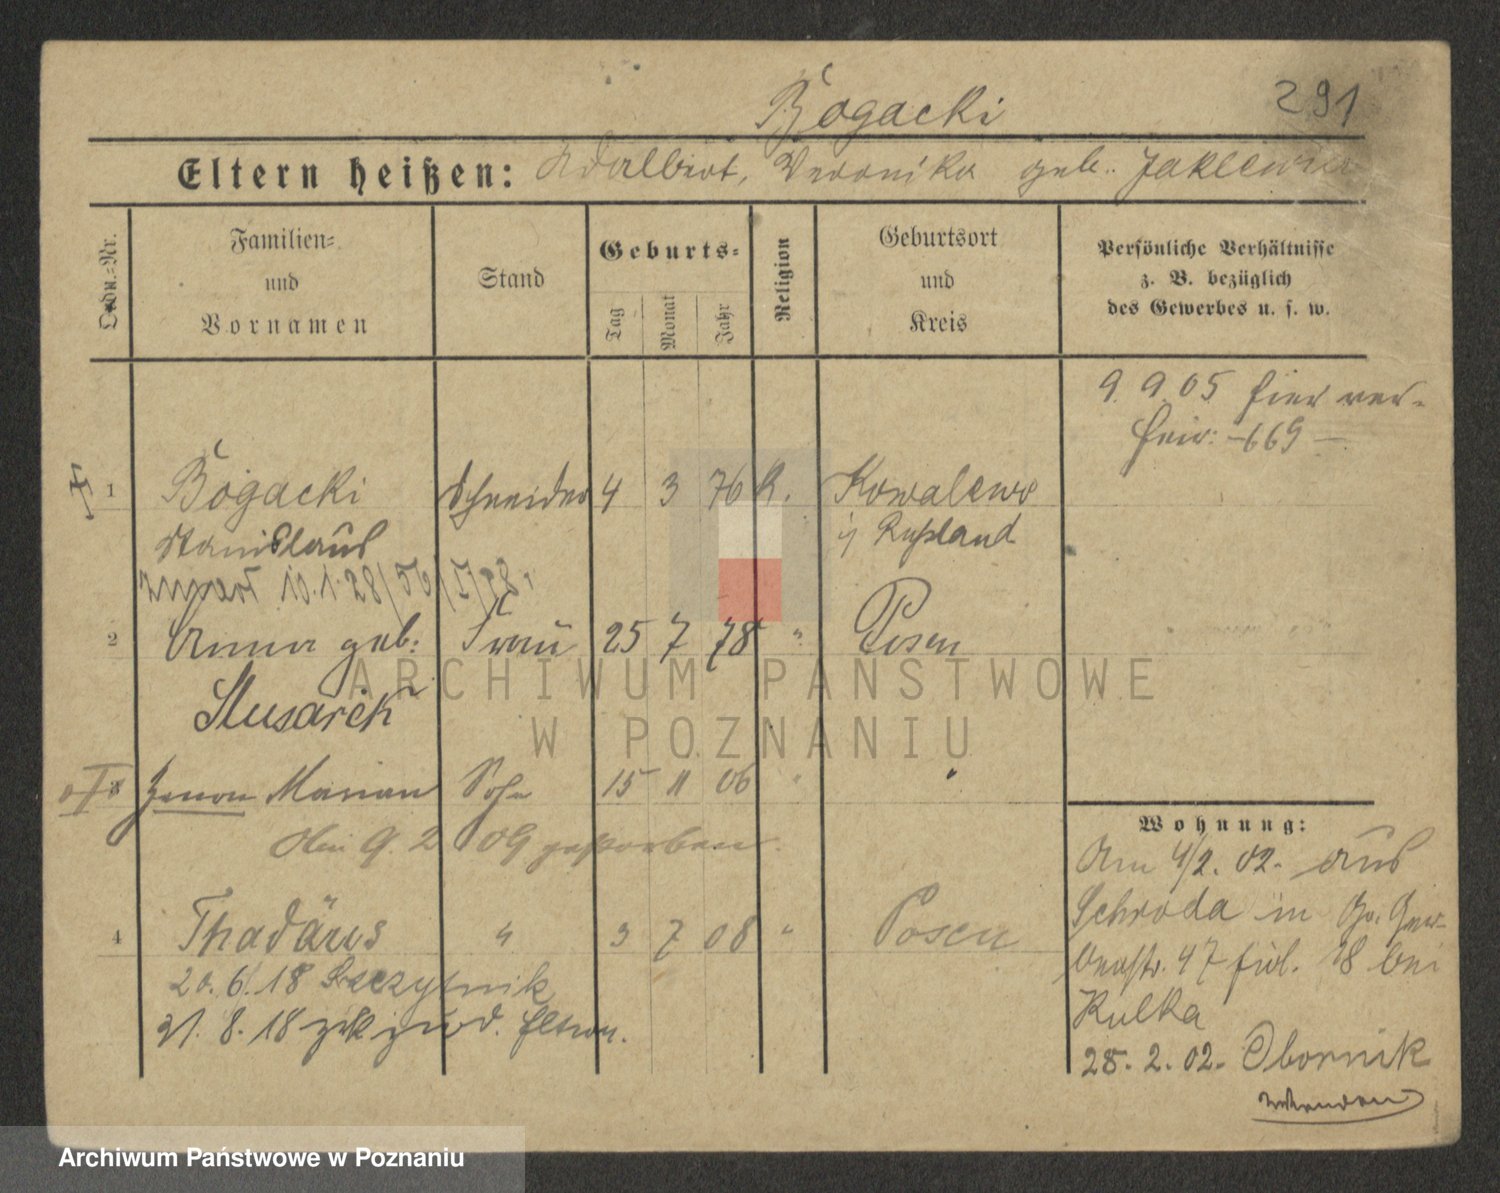 Bogacki
291
Eltern heißen: Adalbert, Veronika geb.
Ordn.-Nr.
Familien-
und
Vornamen
Stand
Geburts-
Tag
Monat
Jahr
Religion
Geburtsort
und
Kreis
Persönliche Verhältnisse
z. B. bezüglich
des Gewerbes u. s. w.
9. 9. 05 hier ver-
heir: -669-
1 Bogacki Schneider 4 3 76 k. Kowalewo
Stanislaus i/ Rußland
10.1.28
2 Anna geb: Frau 25 7 78 " Posen
Slusarek
3 Zenon Marian Sohn 15 11 06 " "
Am 9. 2 09 gestorben.
4 Thadäus " 3 7 08 " Posen
20. 6. 18 Szczytnik
21. 8. 18 zrk z. d. Eltern.
Wohnung:
Am 4/2. 02. aus
Schroda in Gr. Ger-
berstr. 47 18 bei
Kulka
28. 2. 02. Obornik
ARCHIWUM PAŃSTWOWE
W POZNANIU
Archiwum Państwowe w Poznaniu